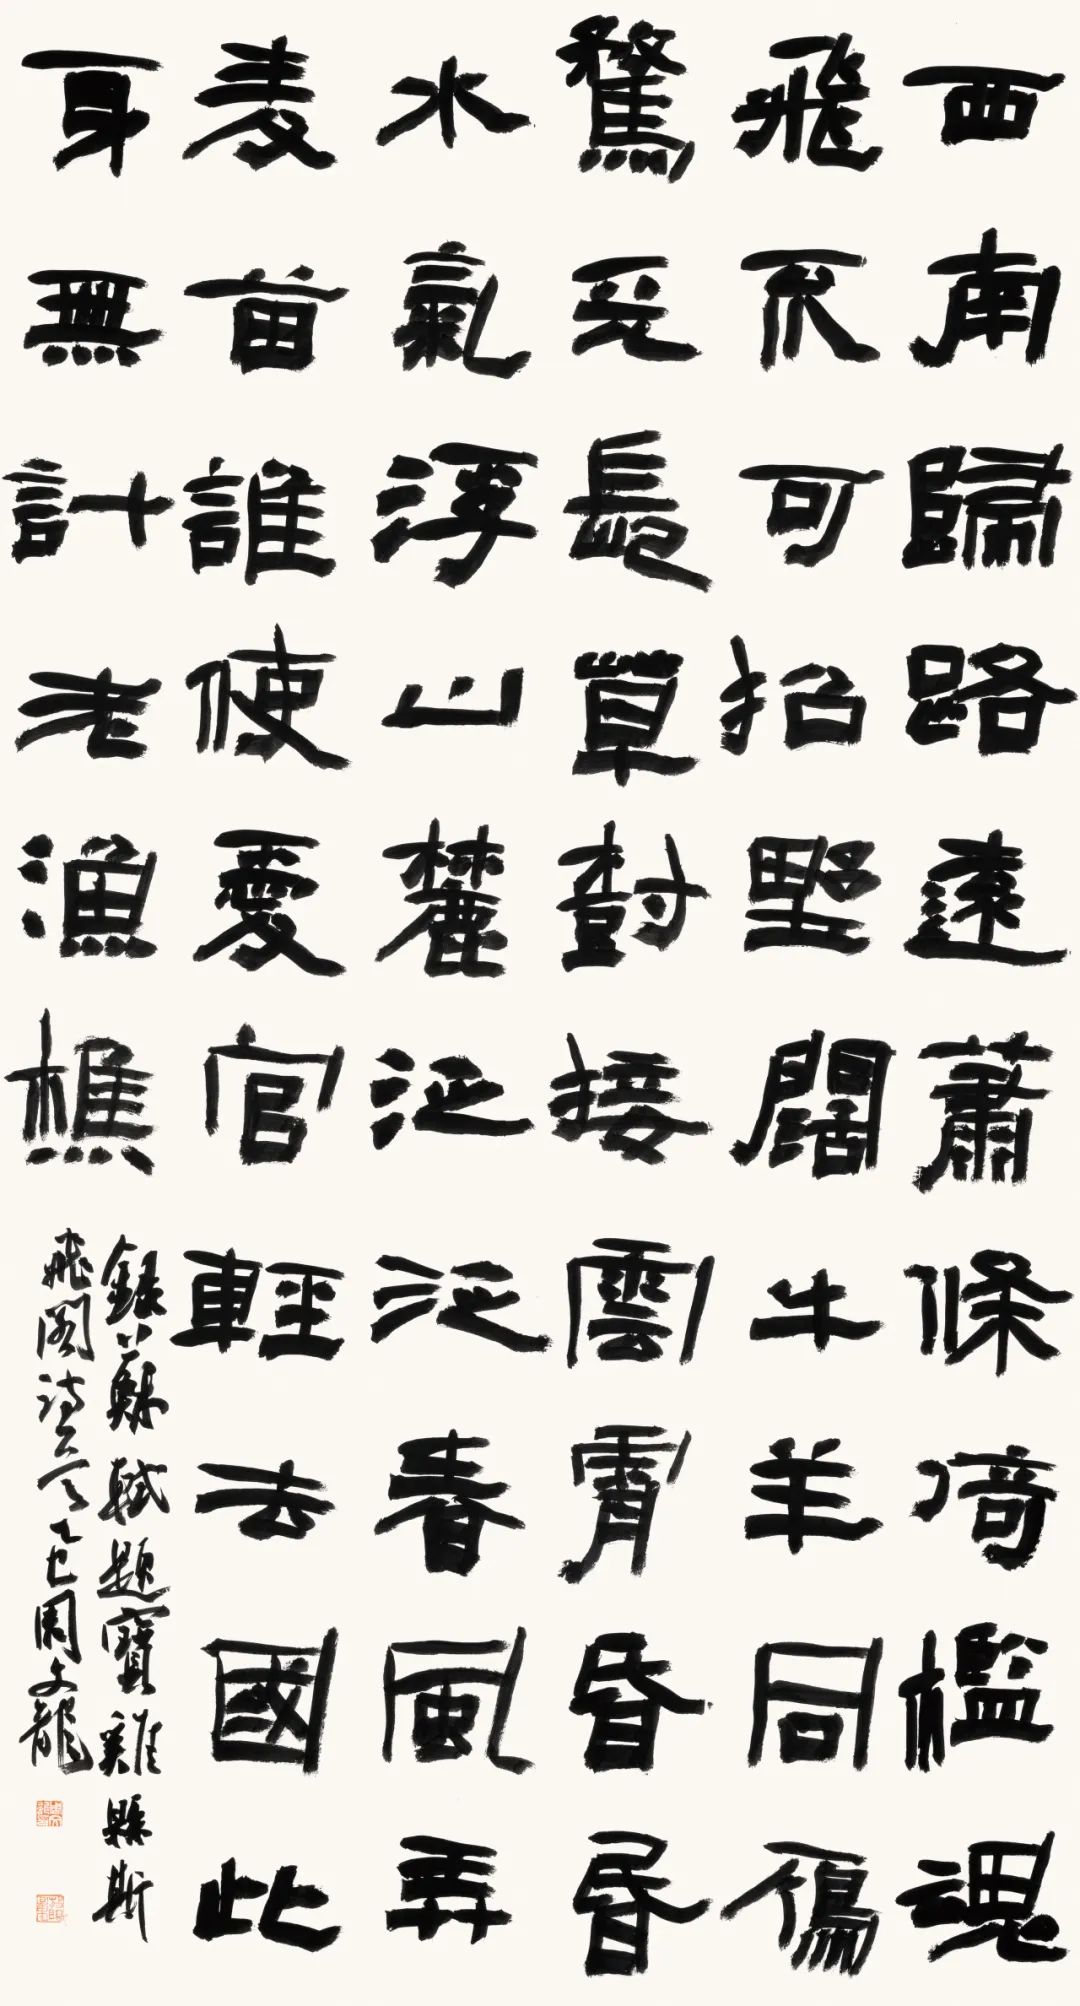 西南歸路遠蕭條倚檻魂
飛不可招野闊牛羊同鴈
鶩天長草樹接雲霄昏昏
水氣浮山麓泛泛春風弄
麥苗誰使愛官輕去國此
身無計老漁樵
錄蘇軾題寶雞縣斯
飛閣詩一首乙巳周文龍